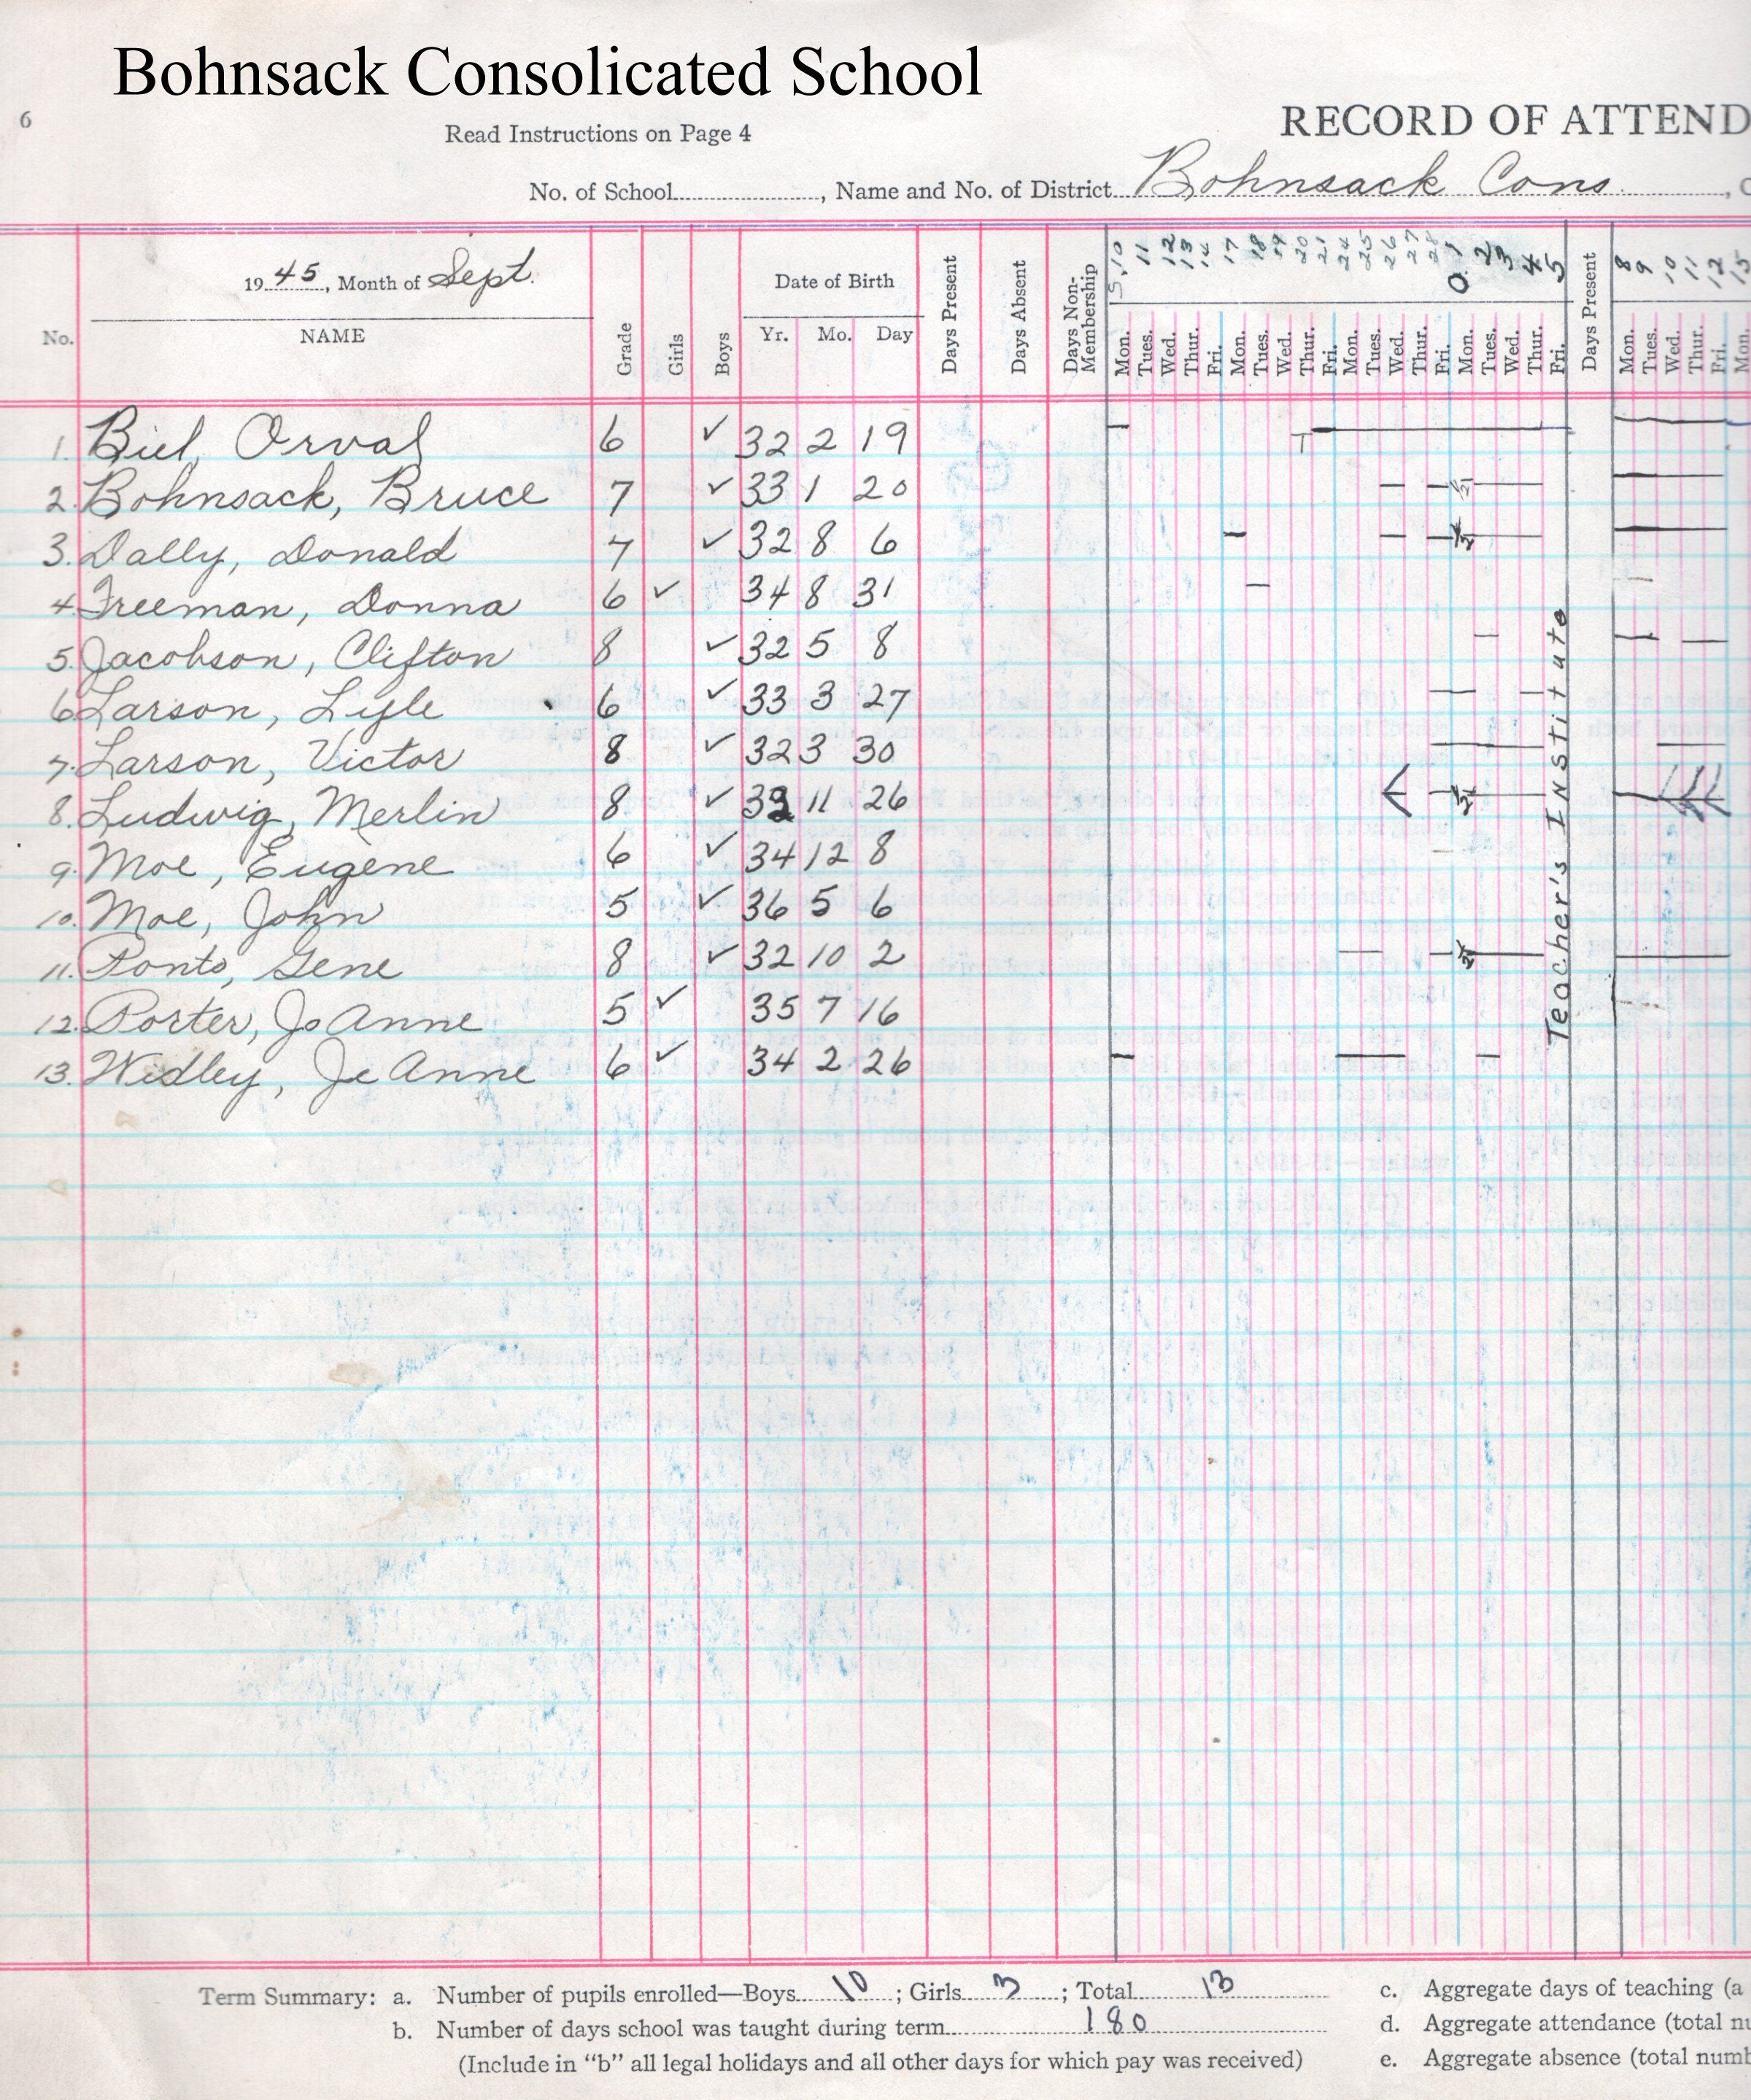 Bohnsack Consolicated School
6
Read Instructions on Page 4
RECORD OF ATTEND
No. of School , Name and No. of District Bohnsack Cons. , C
1945, Month of Sept.
No. NAME Grade Girls Boys Date of Birth Yr. Mo. Day Days Present Days Absent Days Non-Membership Days Present
S. 10 11 12 13 14 17 18 19 20 21 24 25 26 27 28 O. 1 2 3 4 5 8 9 10 11 12 15
Mon. Tues. Wed. Thur. Fri. Mon. Tues. Wed. Thur. Fri. Mon. Tues. Wed. Thur. Fri. Mon. Tues. Wed. Thur. Fri. Mon. Tues. Wed. Thur. Fri. Mon.
1. Biel, Orval 6 ✓ 32 2 19 T
2. Bohnsack, Bruce 7 ✓ 33 1 20
3. Dally, Donald 7 ✓ 32 8 6
4. Freeman, Donna 6 ✓ 34 8 31
5. Jacobson, Clifton 8 ✓ 32 5 8
6. Larson, Lyle 6 ✓ 33 3 27
7. Larson, Victor 8 ✓ 32 3 30
8. Ludwig, Merlin 8 ✓ 11 26
9. Moe, Eugene 6 ✓ 34 12 8
10. Moe, John 5 ✓ 36 5 6
11. Ponto, Gene 8 ✓ 32 10 2
12. Porter, JoAnne 5 ✓ 35 7 16
13. Widley, JeAnne 6 ✓ 34 2 26
Teacher's Institute
Term Summary: a. Number of pupils enrolled—Boys 10 ; Girls 3 ; Total 13
b. Number of days school was taught during term 180
(Include in "b" all legal holidays and all other days for which pay was received)
c. Aggregate days of teaching (a
d. Aggregate attendance (total nu
e. Aggregate absence (total numb